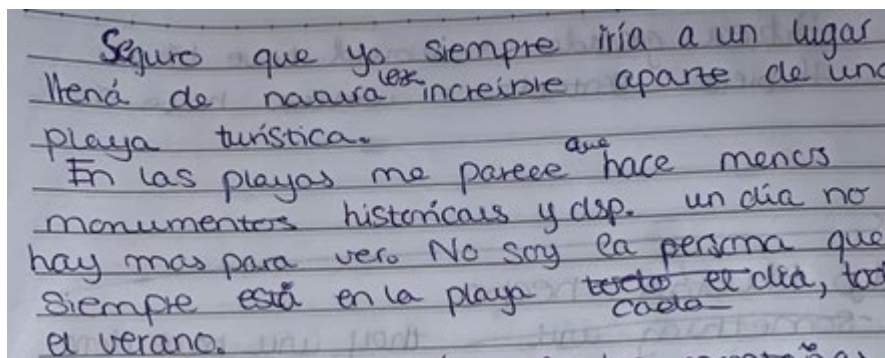 Seguro que yo siempre iría a un lugar
llená de naturaleza increíble aparte de una
playa turística.
En las playas me parece que hace menos
monumentos históricaus y dsp. un día no
hay mas para ver. No soy la persona que
siempre está en la playa todo el dia, tod
cada
el verano.